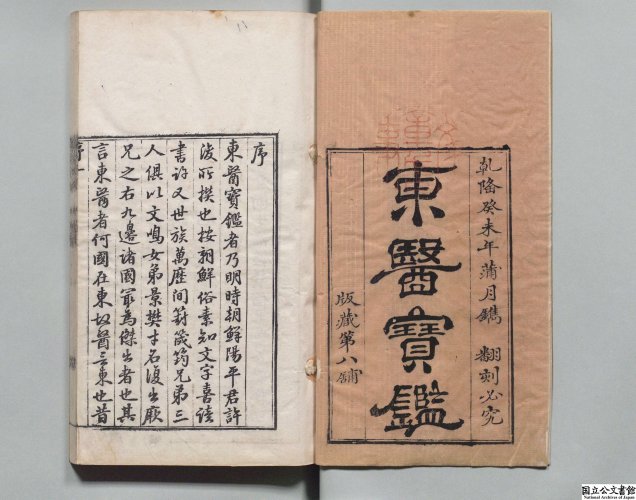 乾隆癸未年蒲月鐫 翻刻必究
東醫寶鑑
版藏第八鋪
序
東醫寶鑑者乃明時朝鮮陽平君許
浚所撰也按朝鮮俗素知文字喜讀
書許又世族萬歷間葑箴筠兄弟三
人俱以文鳴女弟景樊才名復出厥
兄之右九邊諸國冣為傑出者也其
言東醫者何國在東故醫言東也昔
序一
国立公文書館
National Archives of Japan